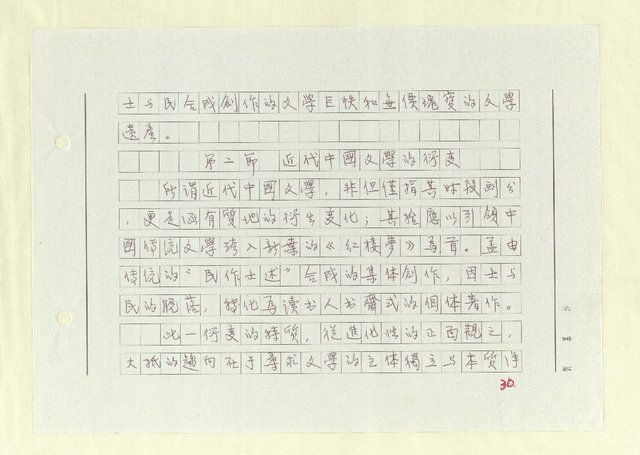 士与民合成創作的文學巨帙和無價瑰寶的文學
遺產。
第二節 近代中國文學的衍变
所謂近代中國文學，非但僅指其时段劃分
，更是涵有質地的衍生变化；其始應以引領中
國傳统文學跨入新葉的《红楼夢》為首。盖由
傳統的“民作士述”合成的集体創作，因士与
民的脱落，转化為读书人书齋式的個体著作。
此一衍变的特質，從進化性的正面觀之，
大抵的趨向在于尋求文學的主体獨立与本質淨
30.